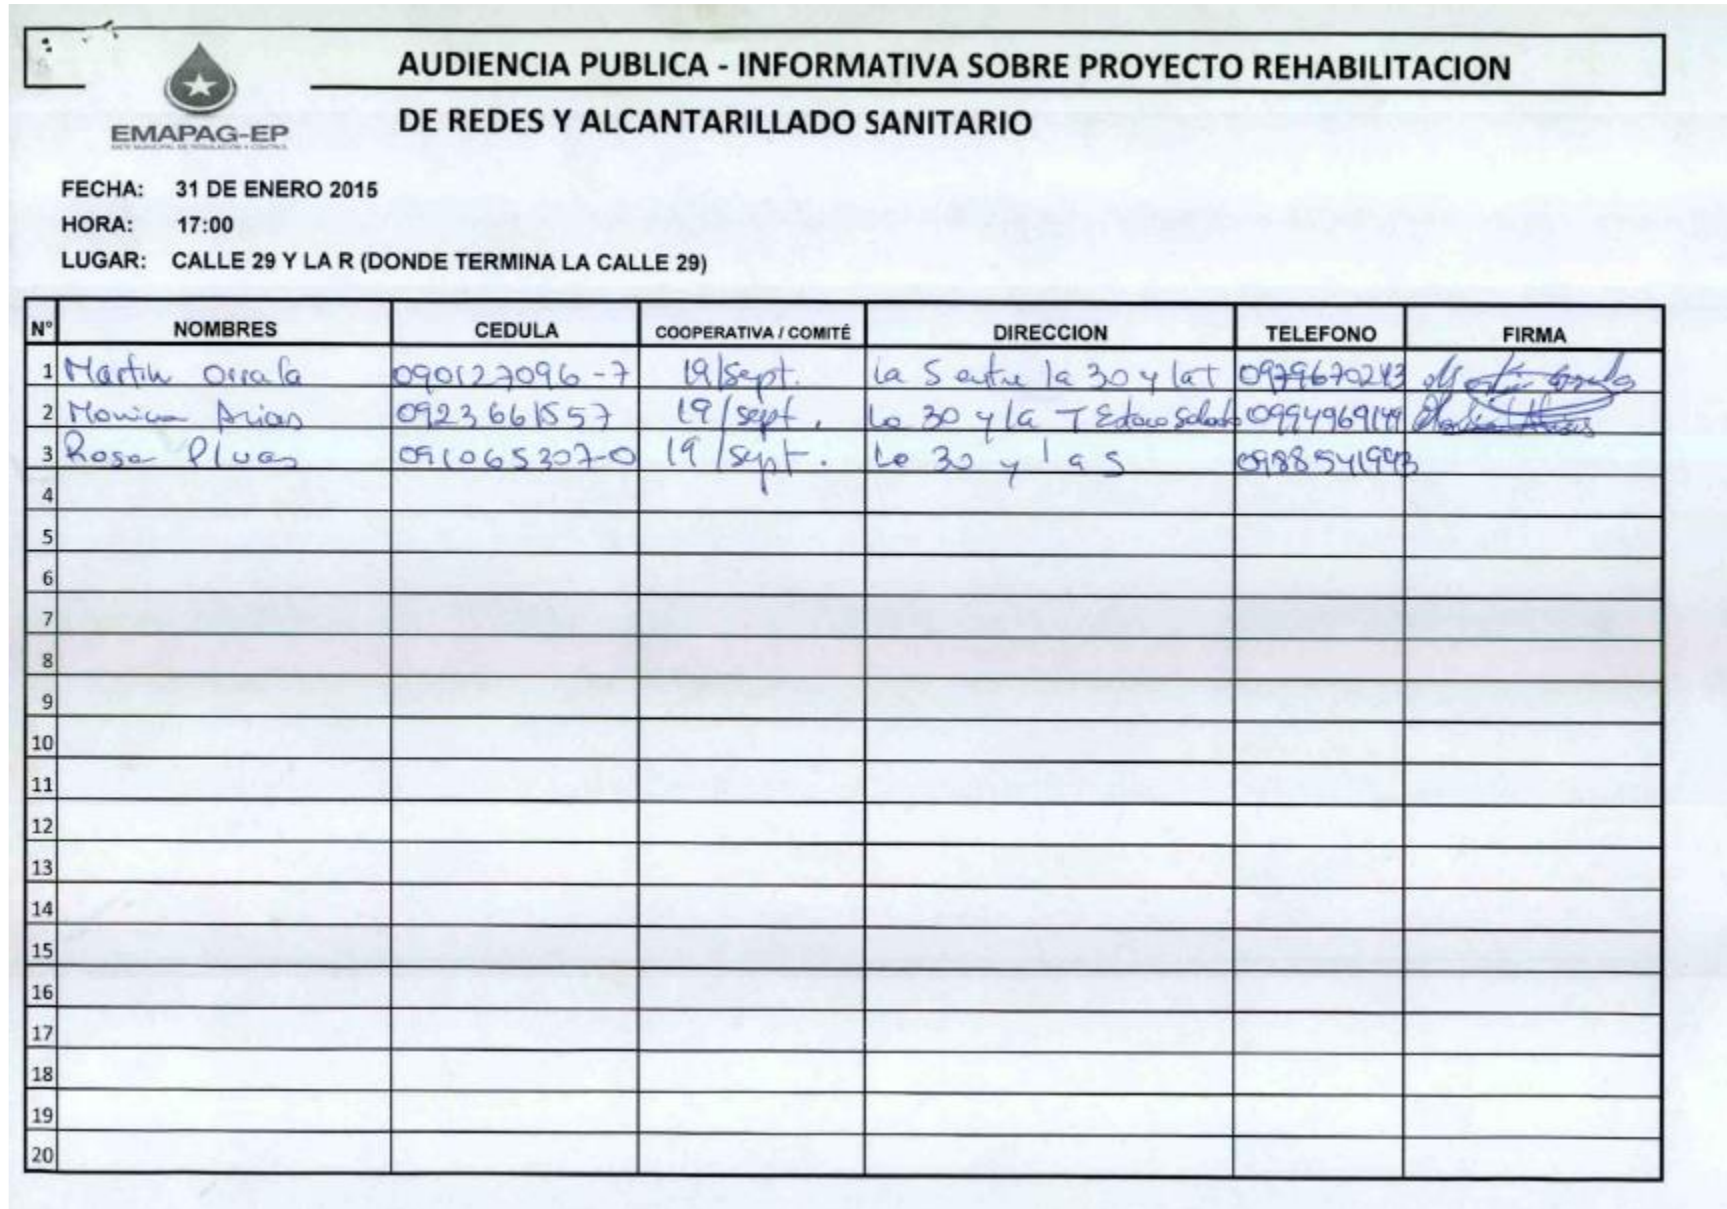 AUDIENCIA PUBLICA - INFORMATIVA SOBRE PROYECTO REHABILITACION
DE REDES Y ALCANTARILLADO SANITARIO
EMAPAG-EP
FECHA: 31 DE ENERO 2015
HORA: 17:00
LUGAR: CALLE 29 Y LA R (DONDE TERMINA LA CALLE 29)
N° NOMBRES CEDULA COOPERATIVA / COMITÉ DIRECCION TELEFONO FIRMA
1 Martin Orrala 090127096-7 19/Sept. La S entre la 30 y la T 0979670243
2 Monica Arias 0923661557 19/sept. La 30 y la T 0994969149
3 Rosa Pluas 091065207-0 19/sept. La 30 y la S 0988541943
4
5
6
7
8
9
10
11
12
13
14
15
16
17
18
19
20